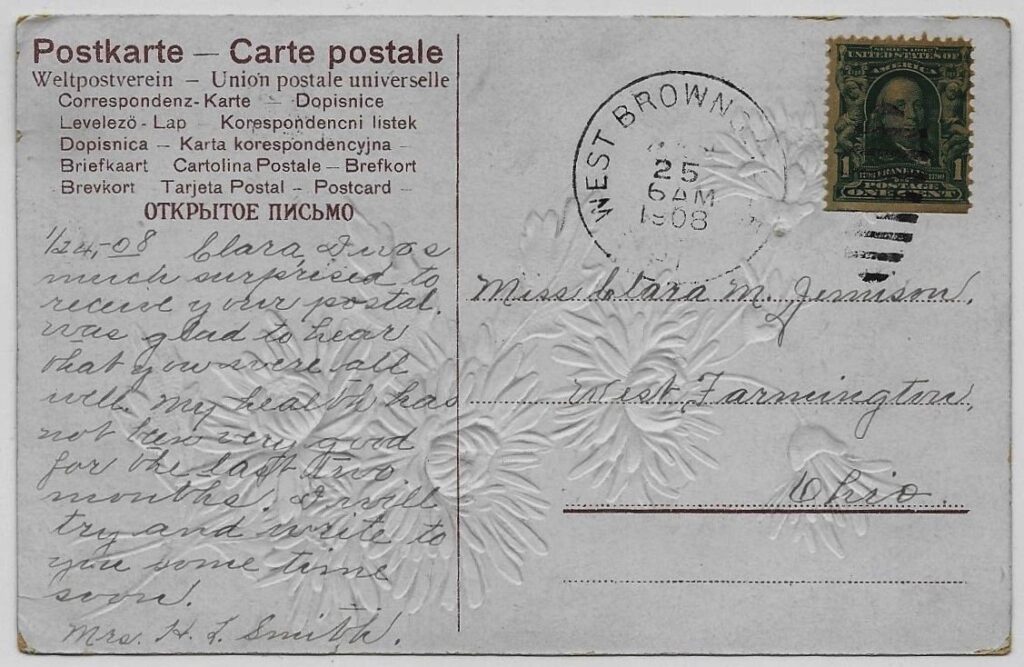 Postkarte — Carte postale
Weltpostverein — Union postale universelle
Correspondenz-Karte — Dopisnice
Levelező-Lap — Korespondencni listek
Dopisnica — Karta korespondencyjna —
Briefkaart Cartolina Postale — Brefkort
Brevkort Tarjeta Postal — Postcard —
ОТКРЫТОЕ ПИСЬМО
1/24,-08 Clara I was
much surprised to
receive your postal.
was glad to hear
that you were all
well. My health has
not been very good
for the last two
months. I will
try and write to
you some time
soon.
Mrs. H. L. Smith.
WEST BROWNS
25
6 AM
1908
SERIES 1902
UNITED STATES OF
AMERICA
FRANKLIN
1 1
POSTAGE
ONE CENT
Miss Clara M. Jemison.
West Farmington,
Ohio.